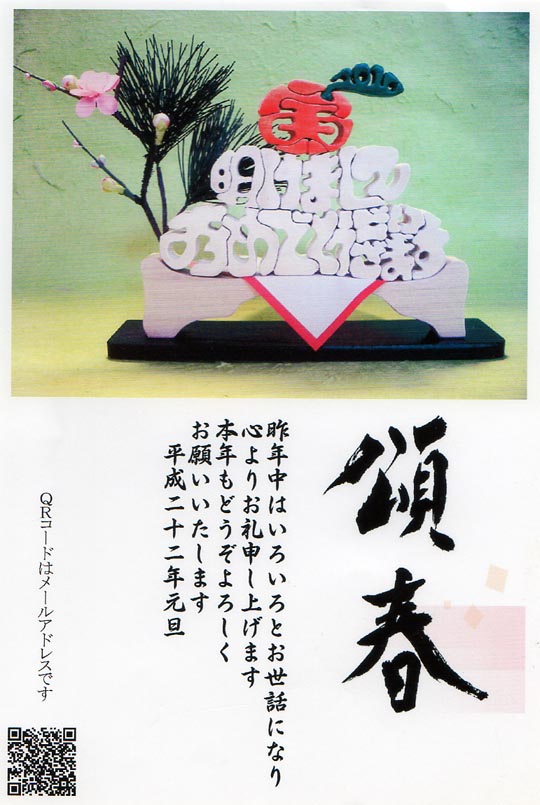 2010
寿
明けまして
おめでとうございます
頌春
昨年中はいろいろとお世話になり
心よりお礼申し上げます
本年もどうぞよろしく
お願いいたします
平成二十二年元旦
QRコードはメールアドレスです